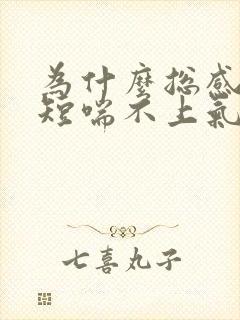 为什麼总感
短喘不上氣
七喜丸子